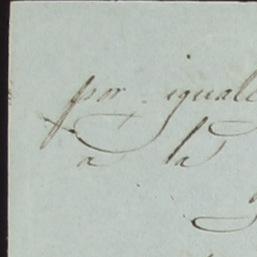 por iguale
a la